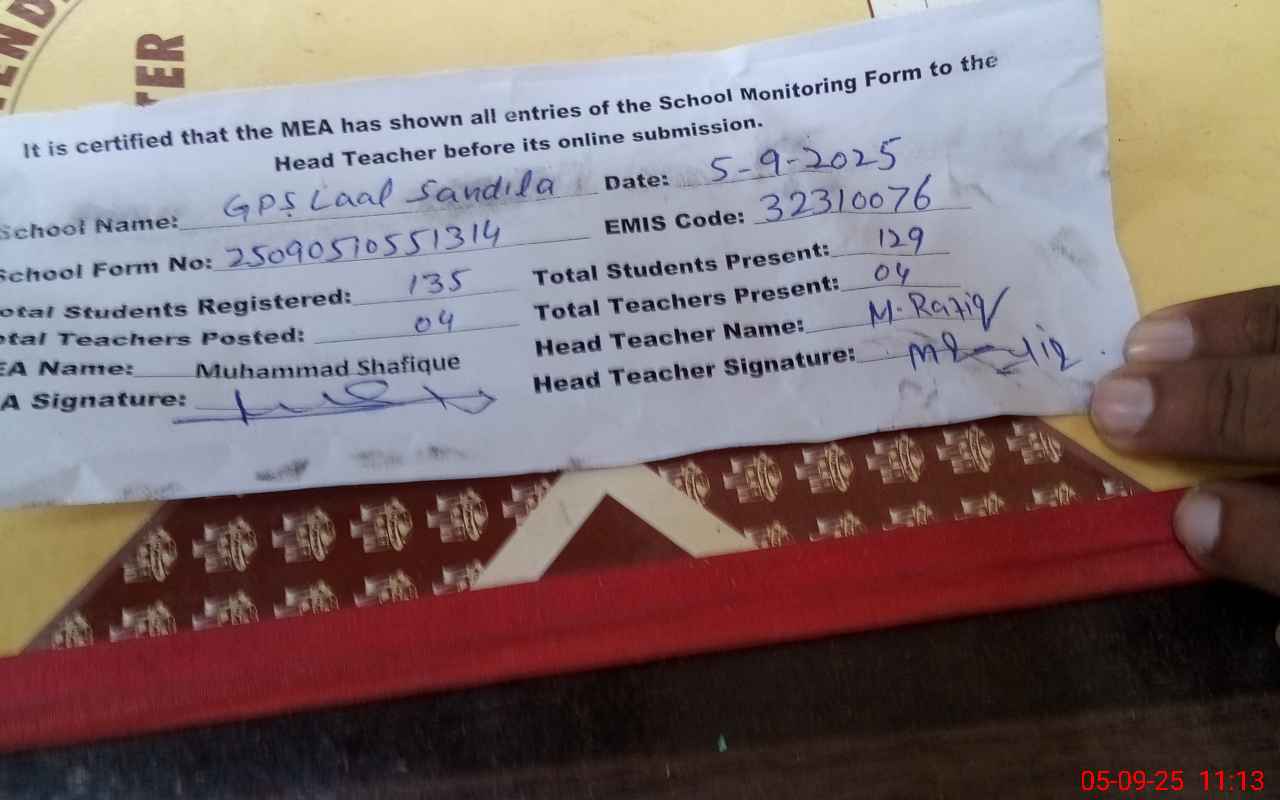 END
TER
It is certified that the MEA has shown all entries of the School Monitoring Form to the
Head Teacher before its online submission.
School Name: GPS Laal Sandila Date: 5-9-2025
School Form No: 25090510551314 EMIS Code: 32310076
otal Students Registered: 135 Total Students Present: 129
tal Teachers Posted: 04 Total Teachers Present: 04
EA Name: Muhammad Shafique Head Teacher Name: M. Rafiq
A Signature: Head Teacher Signature:
05-09-25 11:13